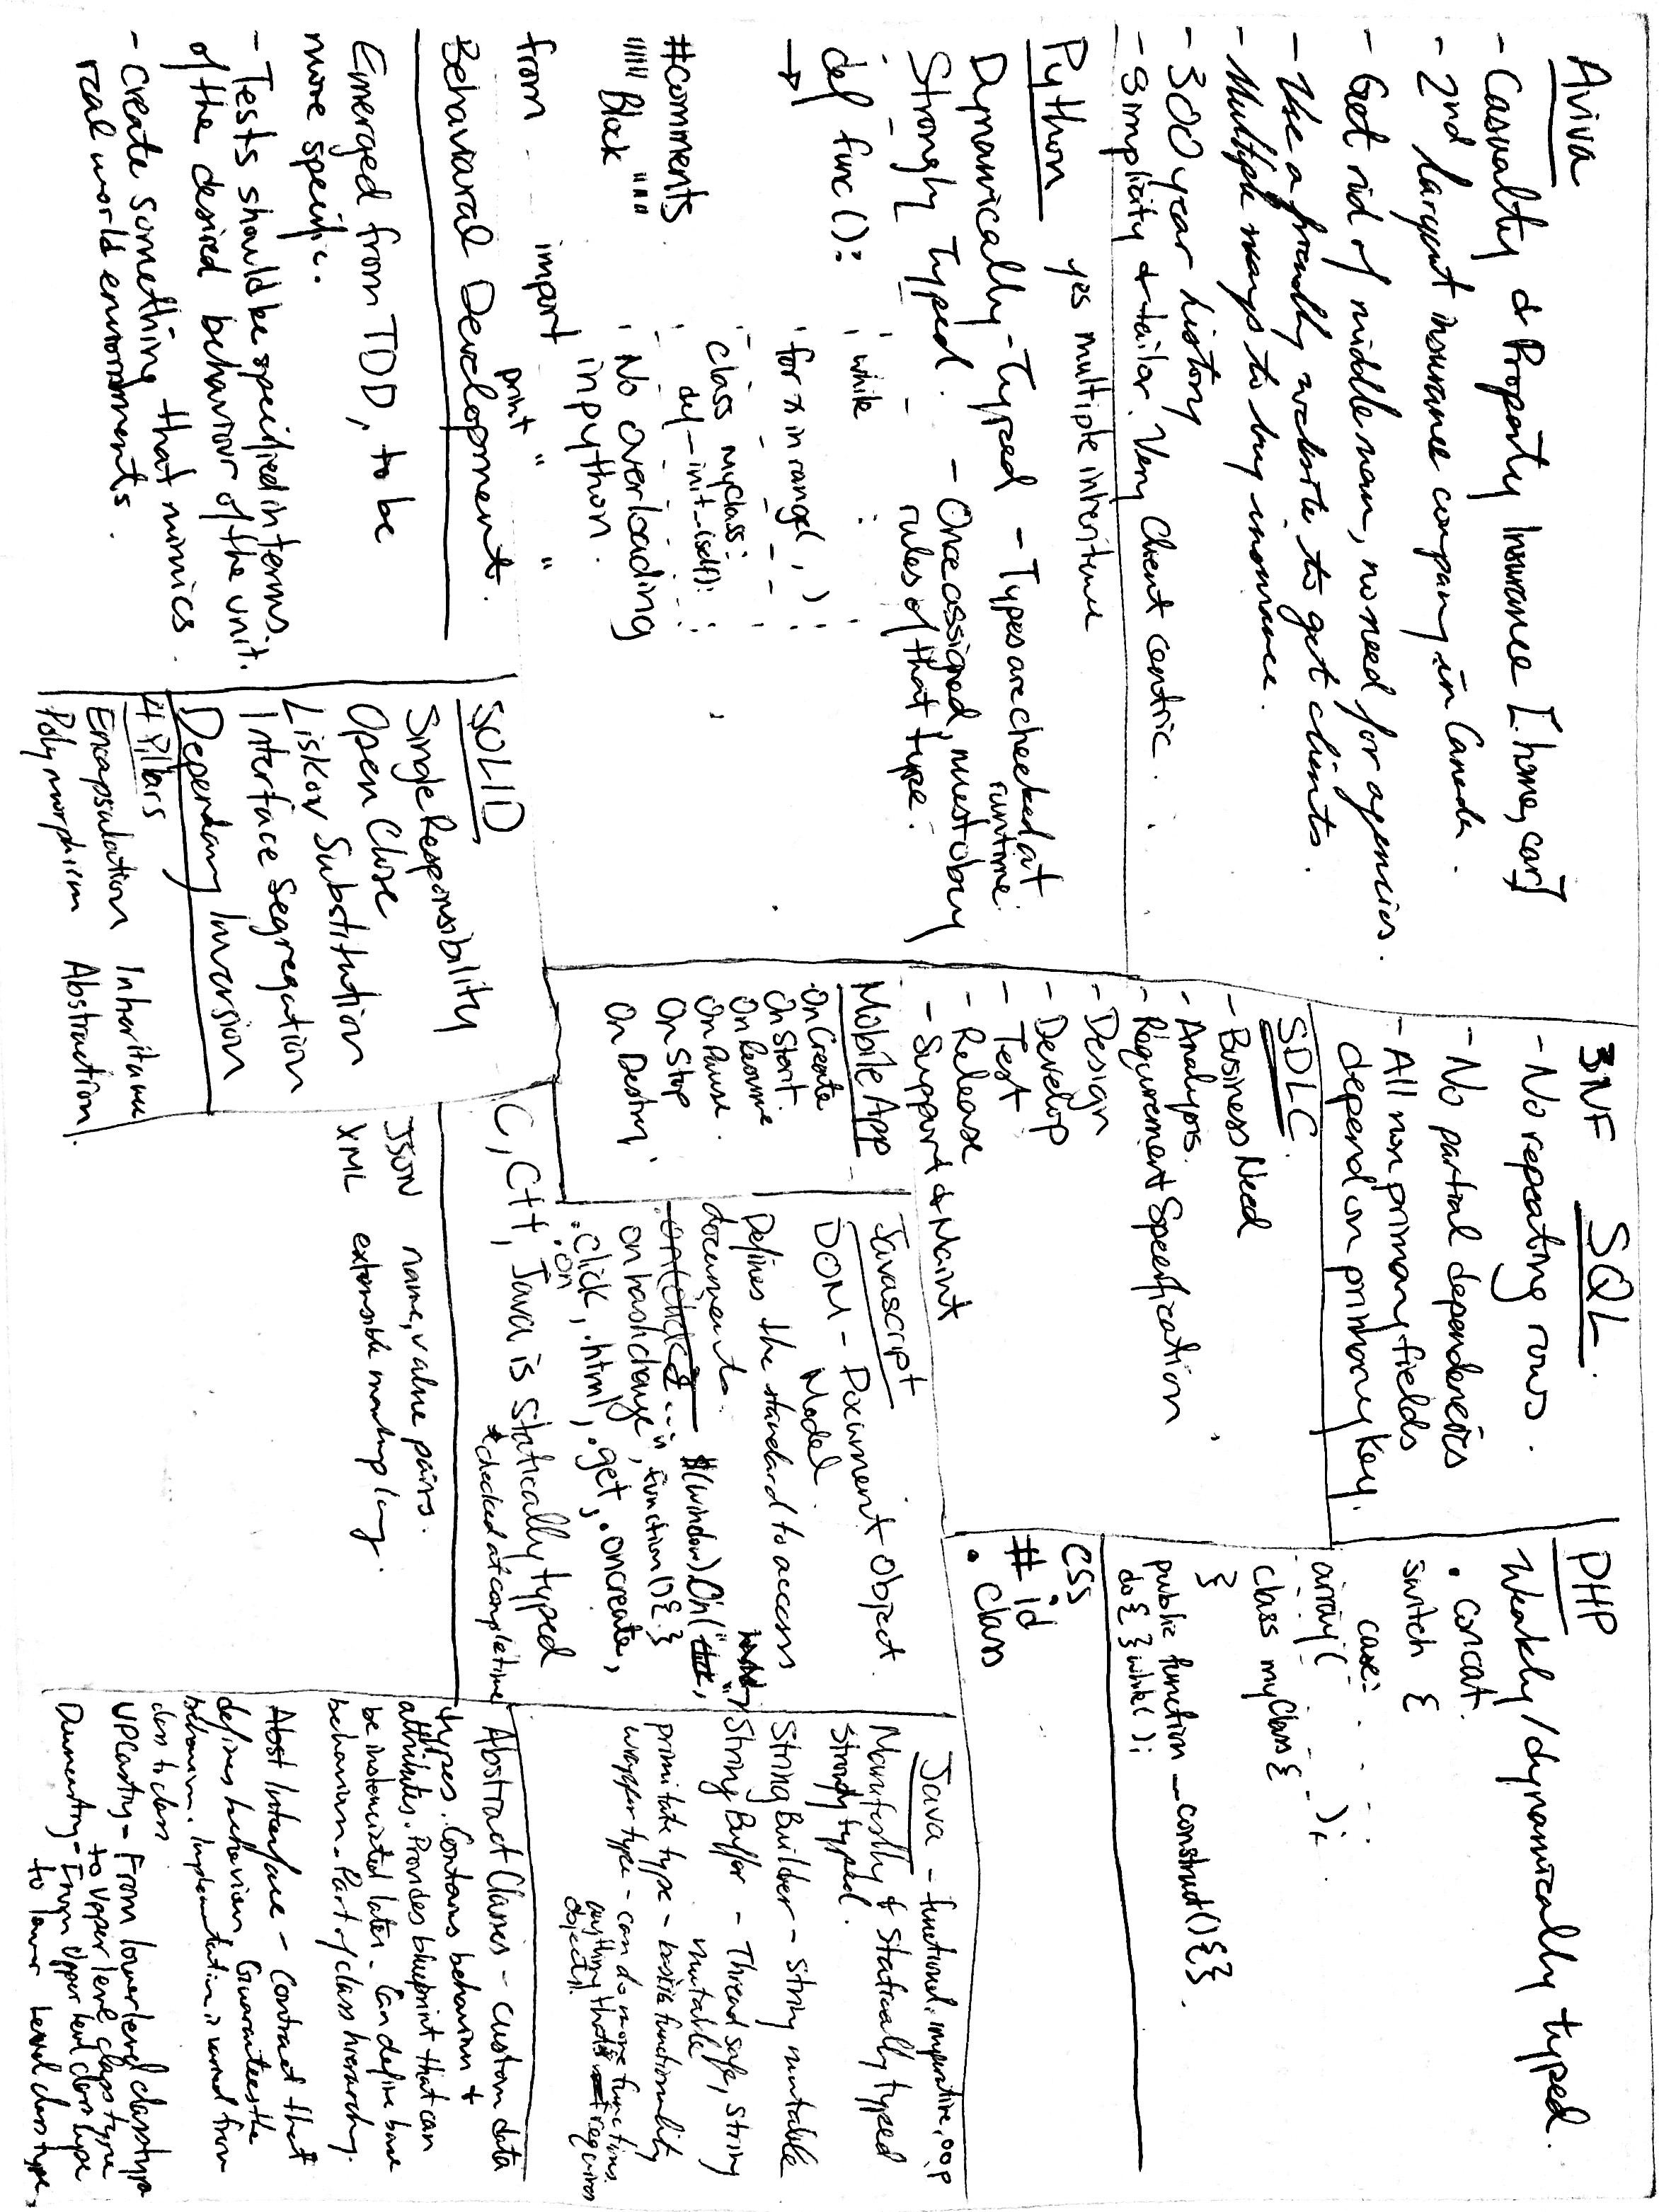 Aviva
- Casualty & Property Insurance [home, car]
- 2nd largest insurance company in Canada.
- Got rid of middle man, no need for agencies.
- Use a friendly website to get clients.
- Multiple ways to buy insurance.
- 300 year history
- Simplicity & tailor. Very Client centric.
Python yes multiple inheritance
Dynamically-Typed - Types are checked at runtime.
Strongly Typed. - Once assigned, must obey
rules of that type.
def func():
while
for x in range( , )
class myclass:
def __init__(self):
#comments
""" Block """
- No overloading
in python.
from import
print " "
Behavioral Development.
Emerged from TDD, to be
more specific.
- Tests should be specified in terms.
of the desired behaviour of the unit.
- Create something that mimics
real world environments.
SOLID
Single Responsibility
Open Close
Liskov Substitution
Interface Segregation
Dependancy Inversion
4 Pillars
Encapsulation Inheritance
Polymorphism Abstraction.
SQL
3NF
- No repeating rows.
- No partial dependencies
- All non primary fields
depend on primary key.
SDLC
- Business Need
- Analysis.
- Requirement Specification
- Design
- Develop
- Test
- Release
- Support & Maint
Mobile App
OnCreate
OnStart.
OnResume
OnPause.
OnStop
OnDestry.
Javascript
DOM - Document Object
Model.
Defines the standard to access
documents.
$(window).On("
onhashchange, function(){ }
.click, .html, .get, .oncreate,
.on
C, C++, Java is statically typed
*checked at compiletime
JSON name, value pairs.
XML extensible markup lang.
PHP
Weakly/dynamically typed.
. concat.
switch {
case:
array( );
class myClass {
}
public function __construct(){}.
do { } while( );
CSS
# id
. class
Java - functional, imperative, oop
Manifestly & Statically typed
Strongly typed.
String Builder - String mutable
String Buffer - Thread safe, String
mutable
primitate type - basic functionality
wrapper type - can do more functions.
anything that requires
objects.
Abstract Classes - custom data
types. Contains behaviour &
attributes. Provides blueprint that can
be instanciated later. Can define base
behaviour. Part of class hierarchy.
Interface - Contract that
defines behaviour. Guarantees the
behaviour. Implementation is varied from
class to class
UPCasting - From lower level class type
to upper level class type
Downcasting - From upper level class type
to lower level class type,